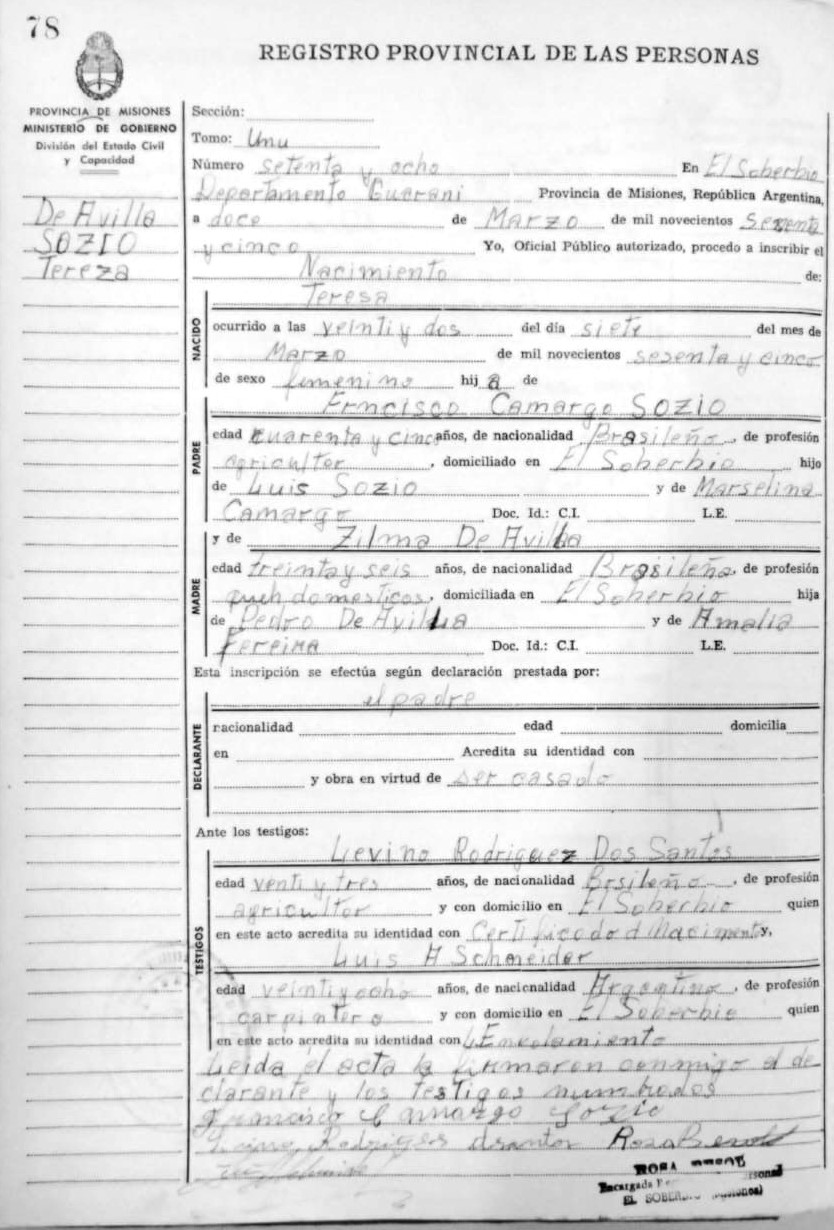 78
REGISTRO PROVINCIAL DE LAS PERSONAS
PROVINCIA DE MISIONES
MINISTERIO DE GOBIERNO
División del Estado Civil
y Capacidad
De Avilla
SOZIO
Tereza
Sección:
Tomo: Unu
Número setenta y ocho En El Soberbio
Departamento Guarani Provincia de Misiones, República Argentina,
a doce de Marzo de mil novecientos Sesenta
y cinco Yo, Oficial Público autorizado, procedo a inscribir el
Nacimiento de:
Teresa
NACIDO
ocurrido a las veinti y dos del día siete del mes de
Marzo de mil novecientos sesenta y cinco
de sexo femenino hij a de
Frncisco Camargo SOZIO
PADRE
edad cuarenta y cinco años, de nacionalidad Brasileño, de profesión
agricultor, domiciliado en El Soberbio hijo
de Luis SOZIO y de Marselina
Camargo Doc. Id.: C.I. L.E.
y de Zilma De Avilla
MADRE
edad treinta y seis años, de nacionalidad Brasileña, de profesión
queh domesticos, domiciliada en El Soberbio hija
de Pedro De Avilla y de Amalia
Pereira Doc. Id.: C.I. L.E.
Esta inscripción se efectúa según declaración prestada por:
el padre
DECLARANTE
nacionalidad edad domicilia
en Acredita su identidad con
y obra en virtud de ser casado
Ante los testigos:
Levino Rodriguez Dos Santos
TESTIGOS
edad venti y tres años, de nacionalidad Brsileño, de profesión
agricultor y con domicilio en El Soberbio quien
en este acto acredita su identidad con Certificado d Nacimento y,
Luis A Schneider
edad veinti y ocho años, de nacionalidad Argentino, de profesión
carpintero y con domicilio en El Soberbio quien
en este acto acredita su identidad con L Enrolamiento
Leida el acta la firmaron conmigo el de
clarante y los testigos numbrados
Francisco Camargo Sozio
Rodrigues dsantos Rosa
ROSA
Encargada
EL SOBERBIO (Misiones)